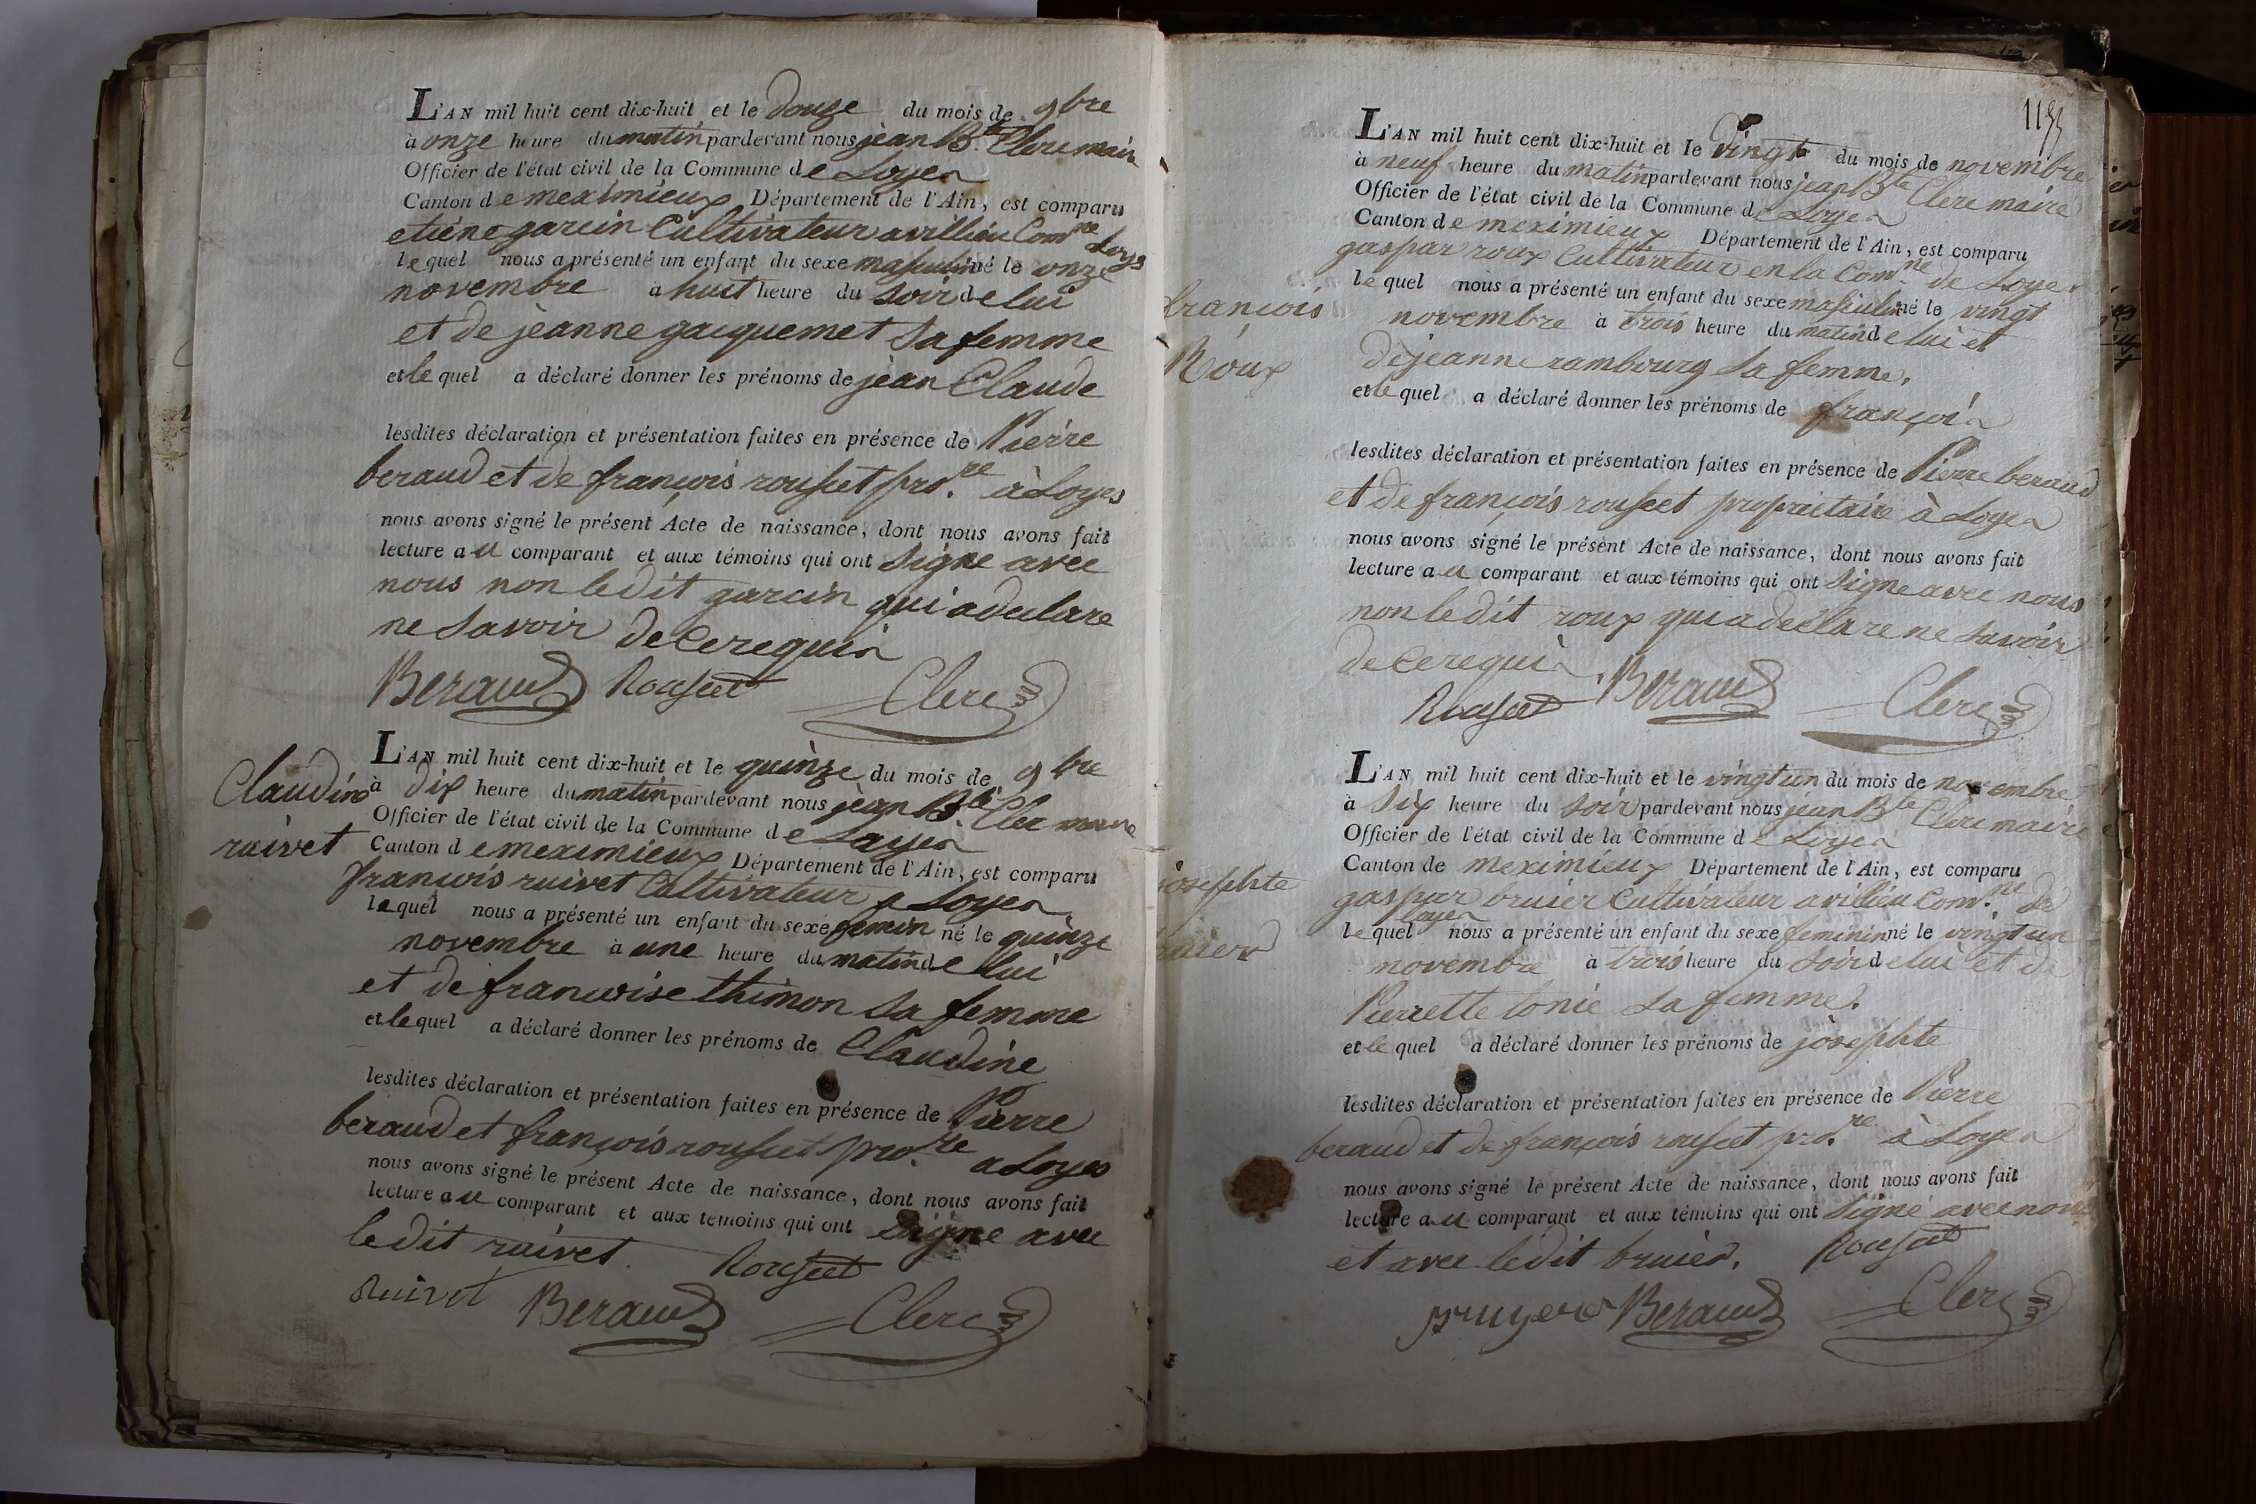 L'AN mil huit cent dix-huit et le douze du mois de 9bre
à onze heure du matin pardevant nous jean Bte Clerc maire
Officier de l'état civil de la Commune de Loyes
Canton de meximieux Département de l'Ain, est comparu
etiene garcin Cultivateur a villieu Comne Loyes
lequel nous a présenté un enfant du sexe masculin né le onze
novembre à huit heure du soir de lui
et de jeanne gacquemet sa femme
et lequel a déclaré donner les prénoms de jean Claude
lesdites déclaration et présentation faites en présence de Pierre
beraud et de françois rousset pro.re à Loyes
nous avons signé le présent Acte de naissance, dont nous avons fait
lecture au comparant et aux témoins qui ont signe avec
nous non ledit garcin qui a declare
ne savoir de ce requis
Beraud Rousset Clerc
Claudine
ruivet
L'AN mil huit cent dix-huit et le quinze du mois de 9bre
à dix heure du matin pardevant nous jean Bte Clerc maire
Officier de l'état civil de la Commune de Loyes
Canton de meximieux Département de l'Ain, est comparu
françois ruivet Cultivateur a Loyes
lequel nous a présenté un enfant du sexe femin né le quinze
novembre à une heure du matin de lui
et de francoise thimon sa femme
et lequel a déclaré donner les prénoms de Claudine
lesdites déclaration et présentation faites en présence de Pierre
beraud et françois rousset pro.re a Loyes
nous avons signé le présent Acte de naissance, dont nous avons fait
lecture au comparant et aux temoins qui ont signe avec
le dit ruivet. Rousset
Ruivet Beraud Clerc
françois
Roux
L'AN mil huit cent dix-huit et le vingt du mois de novembre
à neuf heure du matin pardevant nous jean Bte Clerc maire
Officier de l'état civil de la Commune de Loyes
Canton de meximieux Département de l'Ain, est comparu
gaspar roux Cultivateur en la Comne de Loyes
lequel nous a présenté un enfant du sexe masculin né le vingt
novembre à trois heure du matin de lui et
de jeanne rambourg sa femme.
et lequel a déclaré donner les prénoms de françois
lesdites déclaration et présentation faites en présence de Pierre beraud
et de françois rousset propriétaire à Loyes
nous avons signé le présent Acte de naissance, dont nous avons fait
lecture au comparant et aux témoins qui ont signe avec nous
non ledit roux qui a declare ne savoir
de ce requis.
Rousset Beraud Clerc
josephte
bruier
L'AN mil huit cent dix-huit et le vingt un du mois de novembre
à six heure du soir pardevant nous jean Bte Clerc maire
Officier de l'état civil de la Commune de Loyes
Canton de meximieux Département de l'Ain, est comparu
gaspar bruier Cultivateur a villieu Com.ne de
loyes
lequel nous a présenté un enfant du sexe feminin né le vingt un
novembre à trois heure du soir de lui et de
Pierrette tonie sa femme.
et lequel a déclaré donner les prénoms de josephte
lesdites déclaration et présentation faites en présence de Pierre
beraud et de françois rousset pro.re à Loyes
nous avons signé le présent Acte de naissance, dont nous avons fait
lecture au comparant et aux témoins qui ont signé avec nous
et avec ledit bruier. Rousset
Bruyere Beraud Clerc